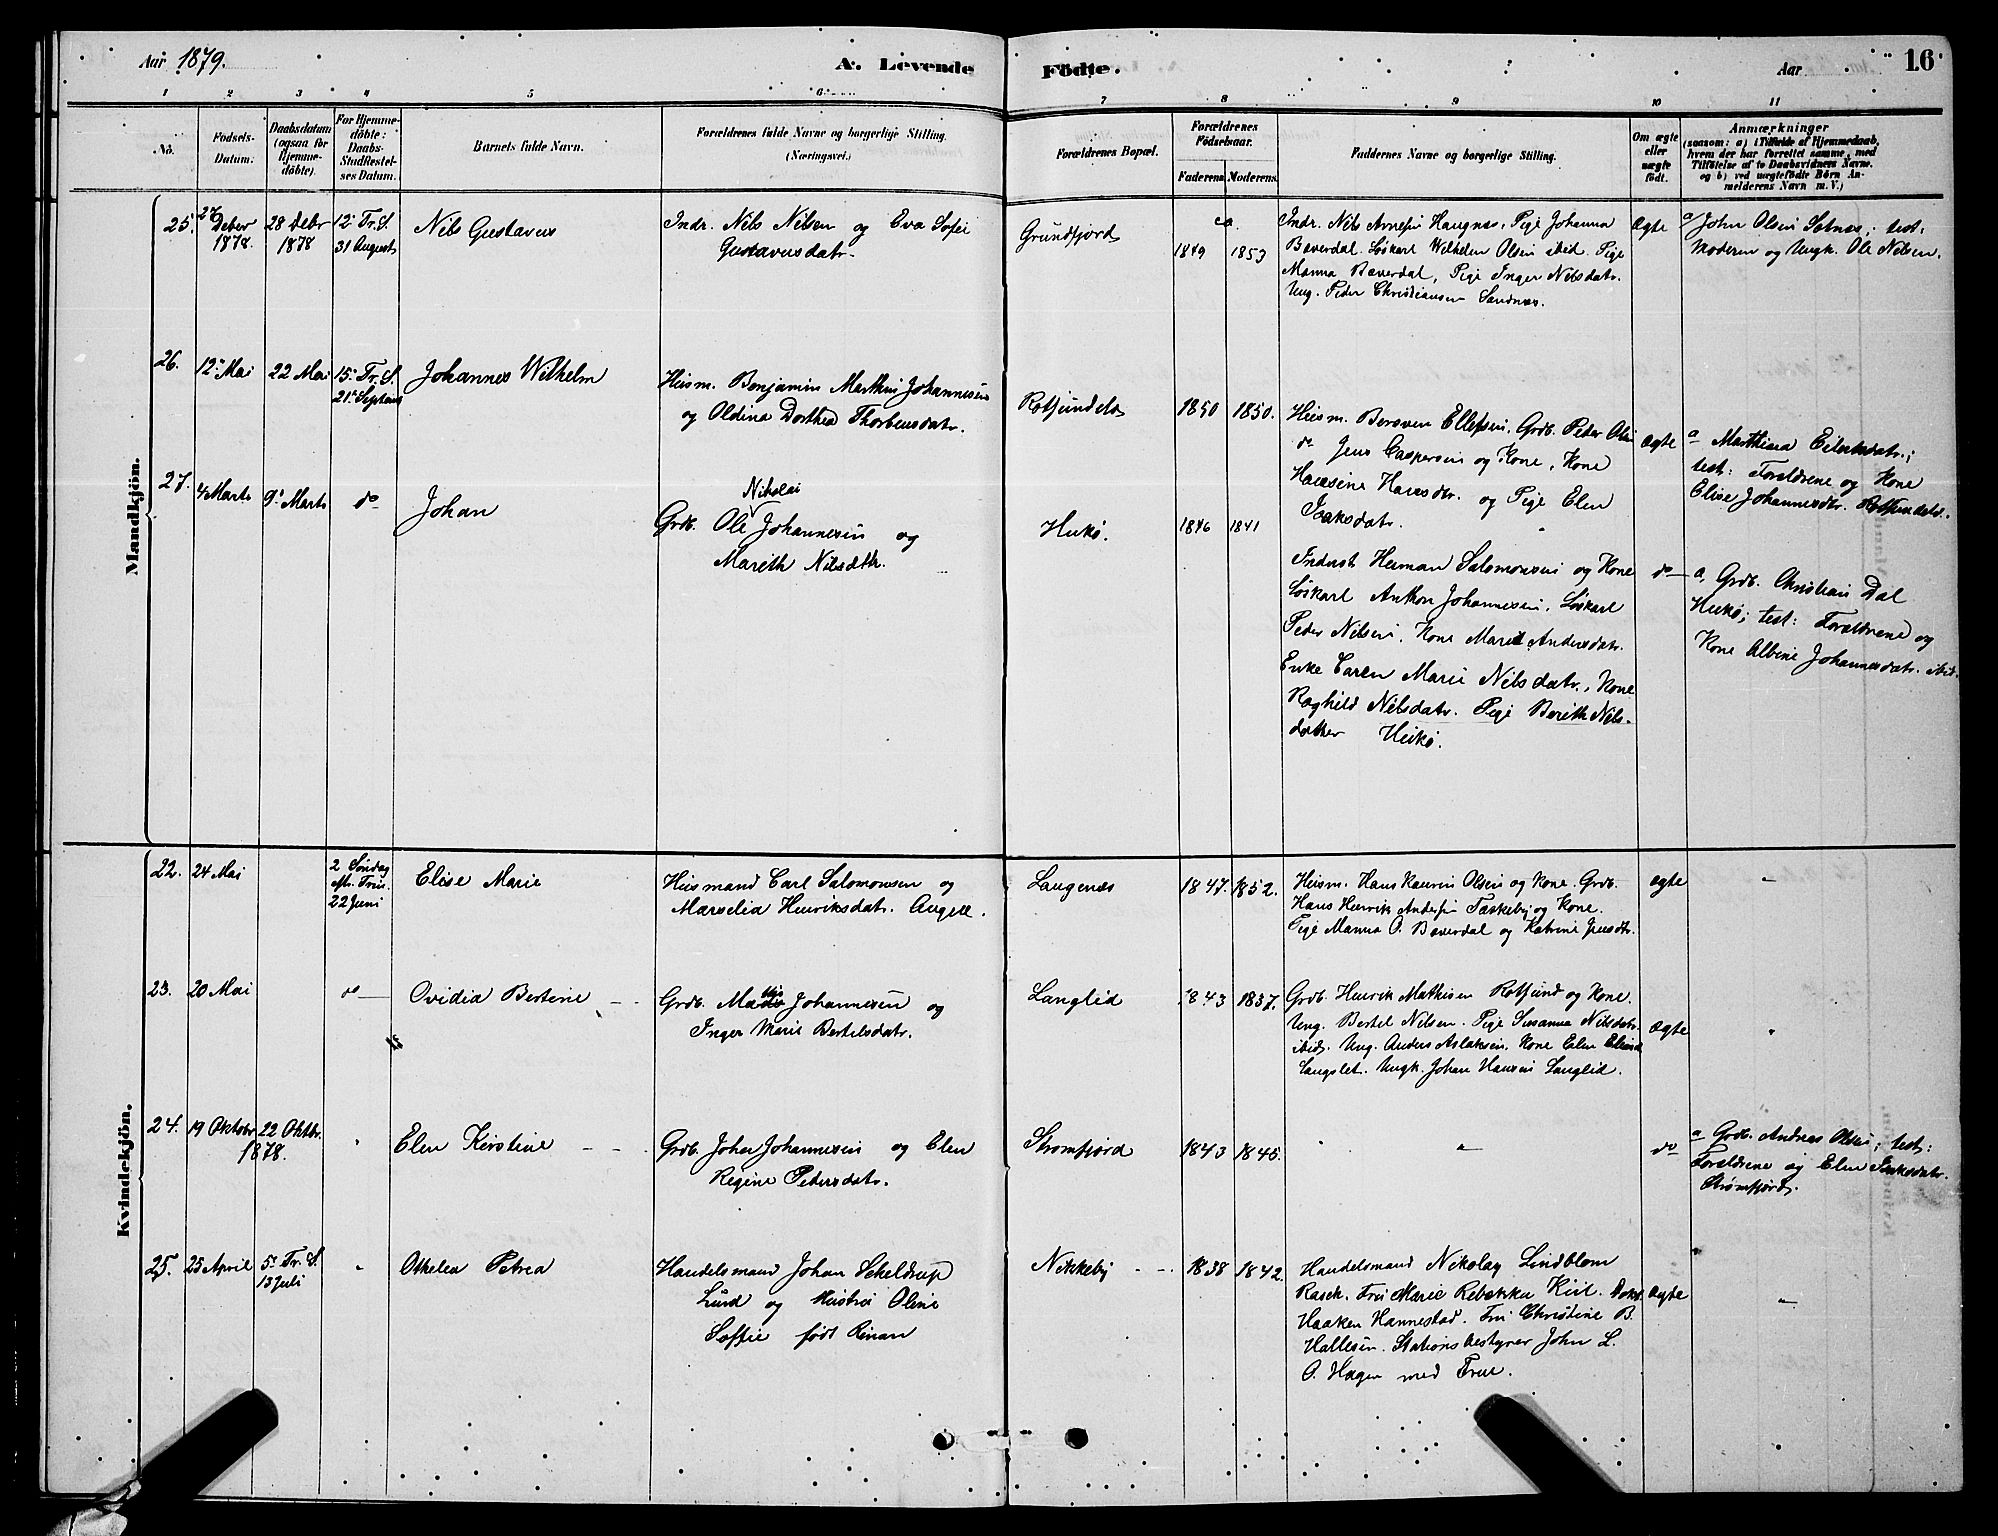 Aar 1879.
A. Levende Födte.
Aar
16
1 2 3 4 5 6 7 8 9 10 11
No.
Födsels-
Datum.
Daabsdatum
(ogsaa for
Hjemme-
döbte).
For Hjemme-
döbte:
Daabs-
Stadfæstel-
ses Datum.
Barnets fulde Navn.
Forældrenes fulde Navne og borgerlige Stilling.
(Næringsvei.)
Forældrenes Bopæl.
Forældrenes
Födselsaar.
Faderens. Moderens.
Faddernes Navne og borgerlige Stilling.
Om ægte
eller
uægte
födt.
Anmærkninger
(saasom: a) i Tilfælde af Hjemmedaab,
hvem der har forrettet samme, med
Tilföielse af to Daabsvidners Navne.
og b) ved uægtefödte Börn An-
melderens Navn m. V.)
Mandkjön.
25.
27 Deber
1878.
28 Debr
1878
12te Tr. S.
31 August
Nils Gustavus
Indr. Nils Nilsen og Eva Sofei
Gustavusdatr.
Grundfjord
1849 1853
Indr. Nils Arnesen Haugnæs, Pige Johanna
Bæverdal. Löskarl Wilhelm Olsen ibid. Pige
Manna Bæverdal, Pige Inger Nilsdatr.
Ung. Peder Christiansen Sandnæs.
Ægte
a/ John Olsen Sotnæs; test:
Moderen og Ungk. Ole Nilsen.
26.
12te Mai
22 Mai
15. Tr. S.
21. Septem
Johannes Wilhelm
Husm. Benjamin Marthin Johannesen
og Oldina Dorthea Thorbensdatr.
Rotsundelv
1850 1850.
Husm. Berøven Ellefsen, Grdb. Peder Olsen
do Jens Caspersen og Kone, Kone
Hansine Hansdtr. og Pige Elen
Isaksdatr.
ægte
a Marthina Eilertsdatr.;
test: Forældrene og Kone
Elise Johannesdtr. Rotsundelv.
27.
4 Marts
9. Marts
do
Johan
Nikolai
Grdb. Ole Johannesen og
Mareth Nilsdtr.
Hukø.
1846 1841
Inderst Herman Salomonsen og Kone
Löskarl Anthon Johannesen, Löskarl
Peder Nilsen, Kone Marit Andersdatr.
Enke Caren Marie Nilsdatr., Kone
Raghild Nilsdatr. Pige Berith Nils-
datter Hukø.
do
a, Grdb. Christian Dal
Hukø; test: Forældrene og
Kone Albine Johannesdatr. ibid.
Kvindekjön.
22.
24 Mai
2 Søndag
eft. Trin.
22 Juni
Elise Marie
Husmand Carl Salomonsen og
Marselia Henriksdatr. Angell.
Langenæs
1847. 1852.
Husm. Hans Laurin Olsen og Kone. Grdb.
Hans Henrik Andersen Taskeby og Kone.
Pige Manna O. Bæverdal og Katrine Jensdtr.
ægte
"
23.
20 Mai
do
Ovidia Bertine
Grdb. Mathis Johannesen og
Inger Marie Bertelsdatr.
Langlid
1843 1837.
Grdb. Henrik Mathisen Rotsund og Kone.
Ung. Bertel Nilsen. Pige Susanna Nilsdatr.
ibid. Ung. Anders Aslaksen. Kone Elen
Langslet. Ungk. Johan Hansen Langlid.
Ægte
"
24.
19 Oktober
22 Oktbr.
1878.
"
Elen Kirstine
Grdb. Johan Johannesen og Elen
Regine Pedersdatr.
Strømfjord
1843 1845.
" "
do
a Grdb. Andreas Olsen; test:
Forældrene og Elen Isaksdatr.
Strømfjord.
25.
25 April
5te Tr. S.
13 Juli
"
Othelea Petrea
Handelsmand Johan Scheldrup
Lund og Hustru Oline
Soffie født Rinan
Nikkeby
1838 1842.
Handelsmand Nikolay Lindblom
Rasch. Fru Marie Rebekka Kiil. Dokt.
Haaken Hannestad. Fru Christine B.
Hallesen. Stationsbestyrer John L.
O. Hagen med Frue.
Ægte
"